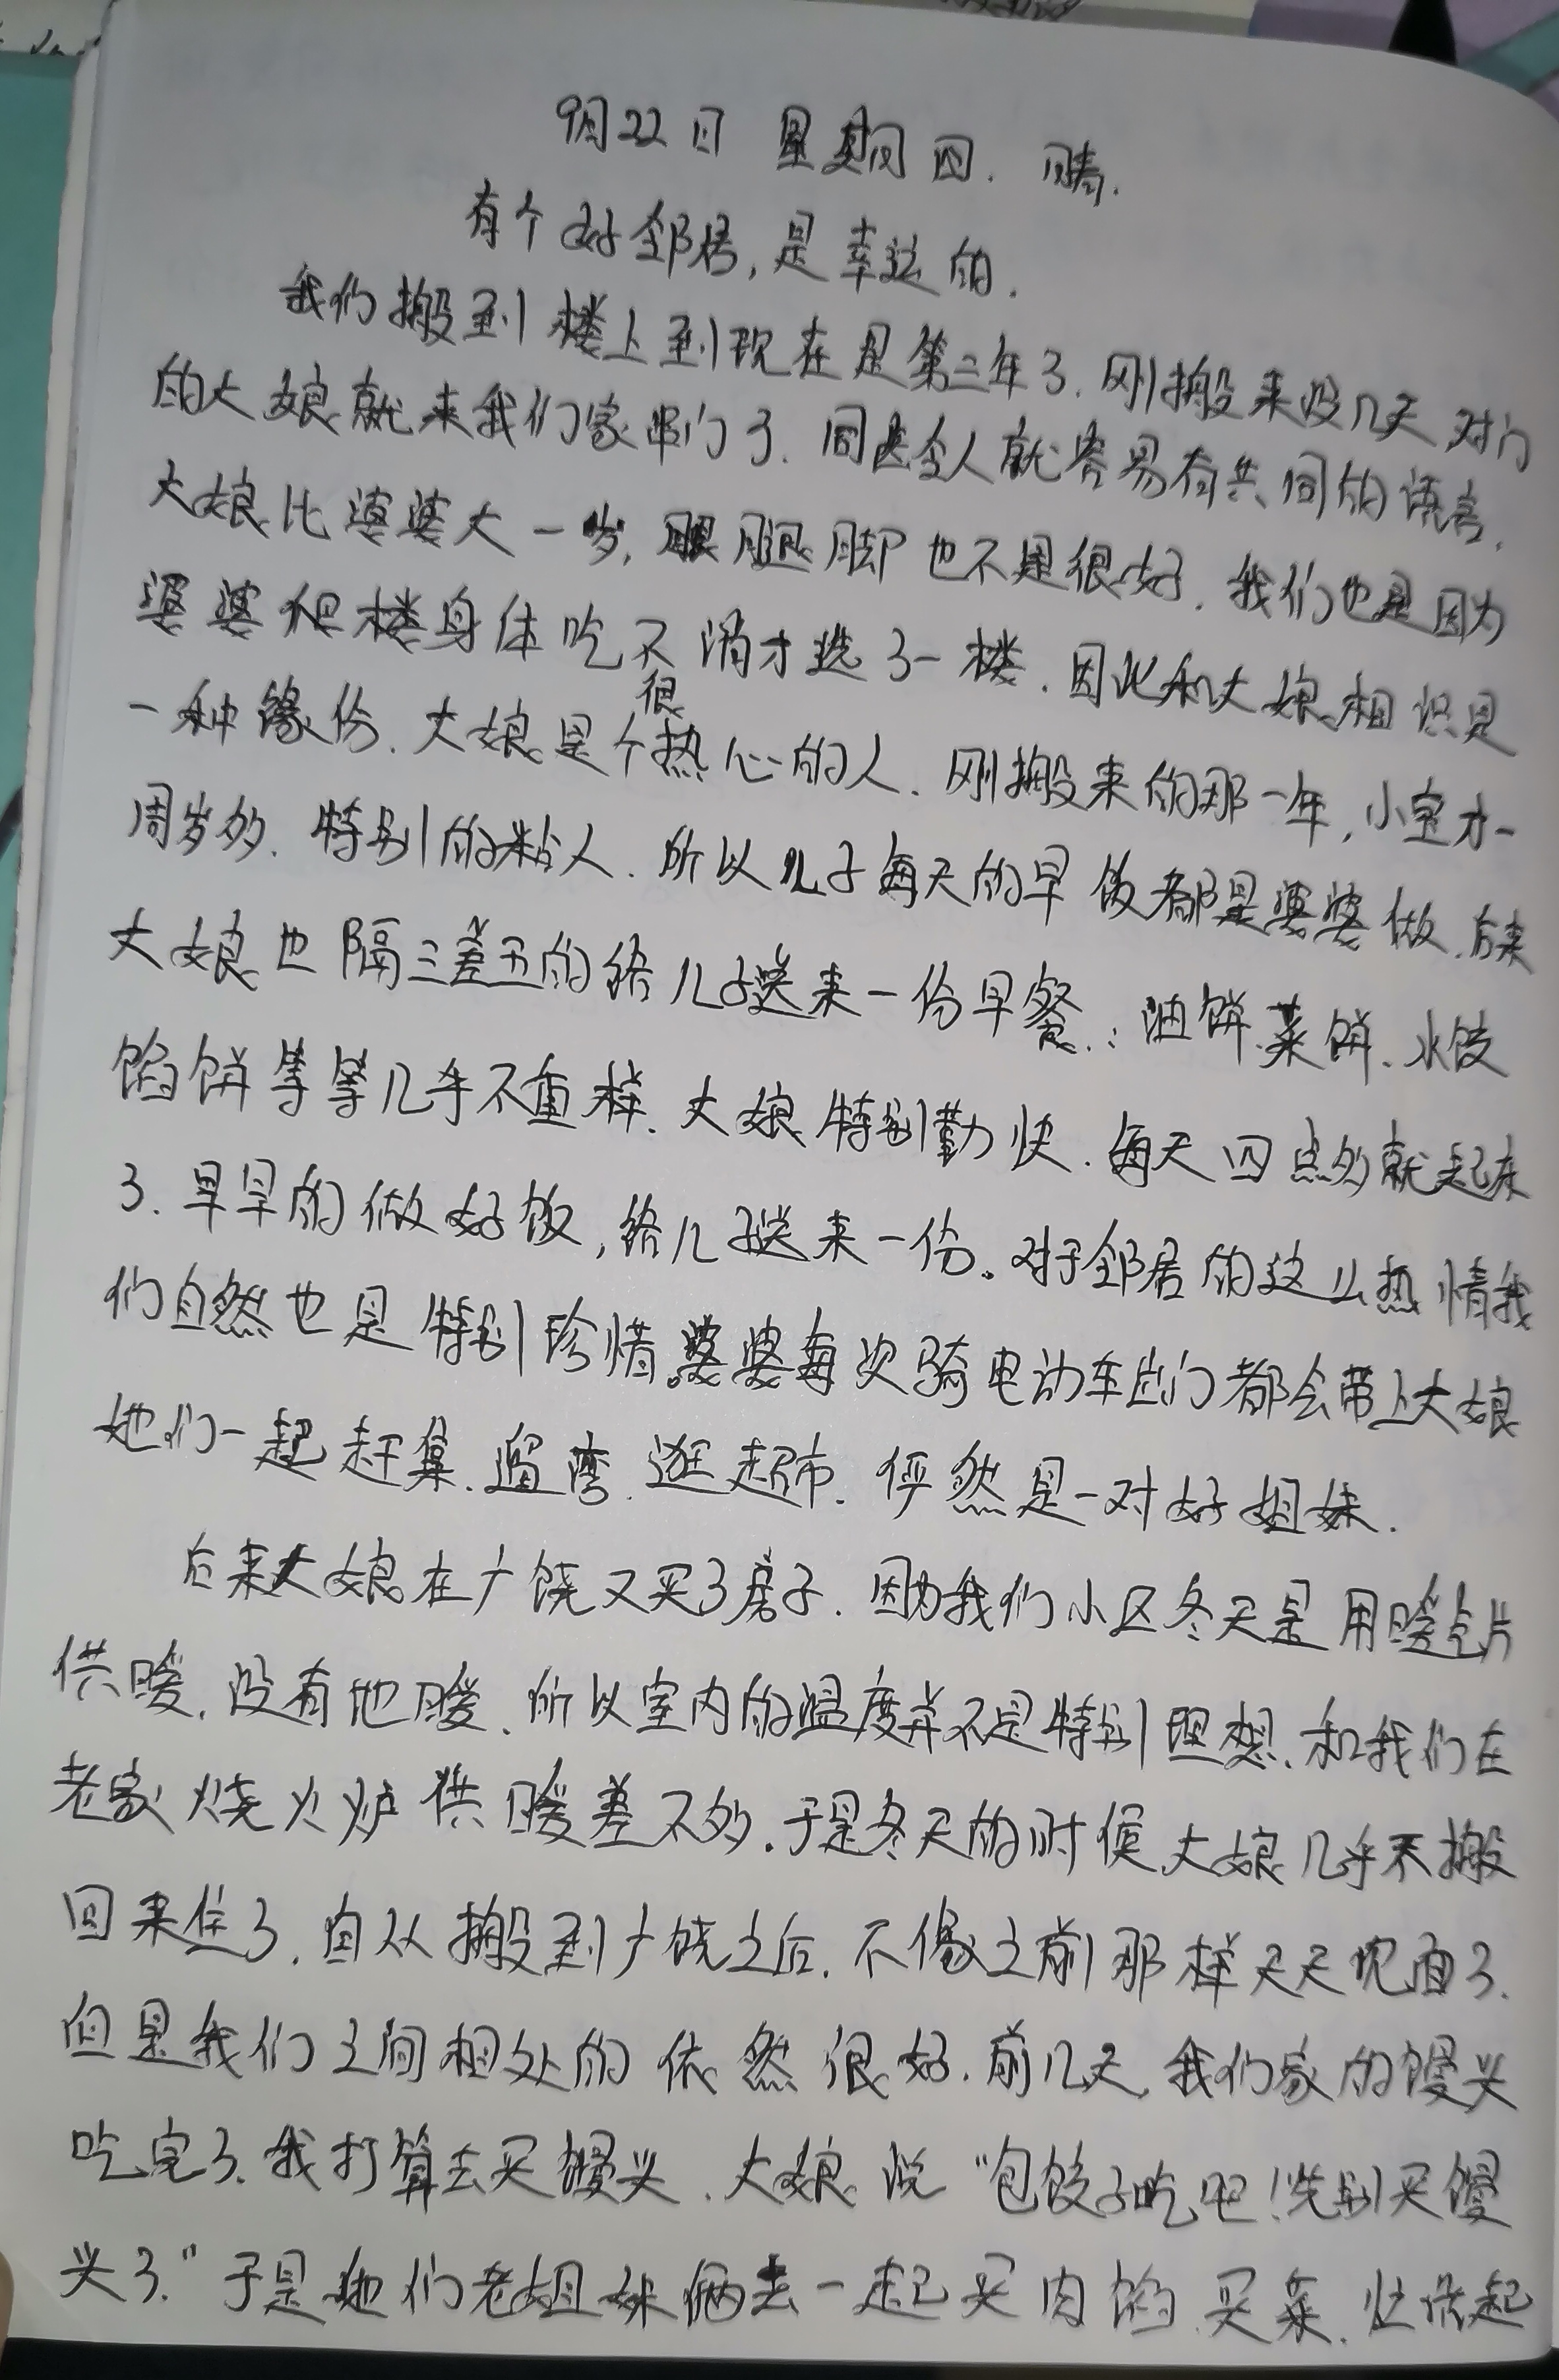 9月22日 星期四. 晴.
有个好邻居,是幸运的.
我们搬到楼上到现在是第三年了.刚搬来没几天对门
的大娘就来我们家串门了.同龄人就容易有共同的语言.
大娘比婆婆大一岁,腿脚也不是很好.我们也是因为
婆婆爬楼身体吃不消才选了一楼.因此和大娘相识是
一种缘份.大娘是个很热心的人.刚搬来的那一年,小宝才一
周岁多.特别的粘人.所以儿子每天的早饭都是婆婆做.后来
大娘也隔三差五的给儿子送来一份早餐.:油饼.菜饼.水饺
馅饼等等几乎不重样.大娘特别勤快.每天四点多就起床
了.早早的做好饭,给儿子送来一份。对于邻居的这么热情我
们自然也是特别珍惜。婆婆每次骑电动车出门都会带上大娘
她们一起赶集.遛弯.逛超市.俨然是一对好姐妹.
后来大娘在广饶又买了房子.因为我们小区冬天是用暖气片
供暖.没有地暖.所以室内的温度并不是特别理想.和我们在
老家烧火炉供暖差不多.于是冬天的时候大娘几乎不搬
回来住了.自从搬到广饶之后.不像之前那样天天见面了.
但是我们之间相处的依然很好.前几天,我们家的馒头
吃完了.我打算去买馒头.大娘说“包饺子吃吧!先别买馒
头了.”于是她们老姐妹俩去一起买肉馅.买菜.